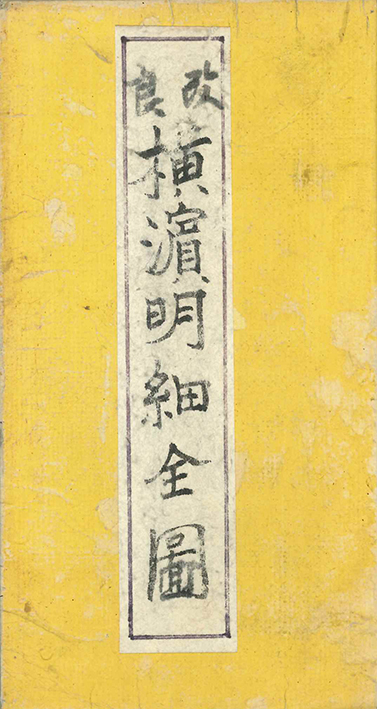 改良
横濵明細全圖